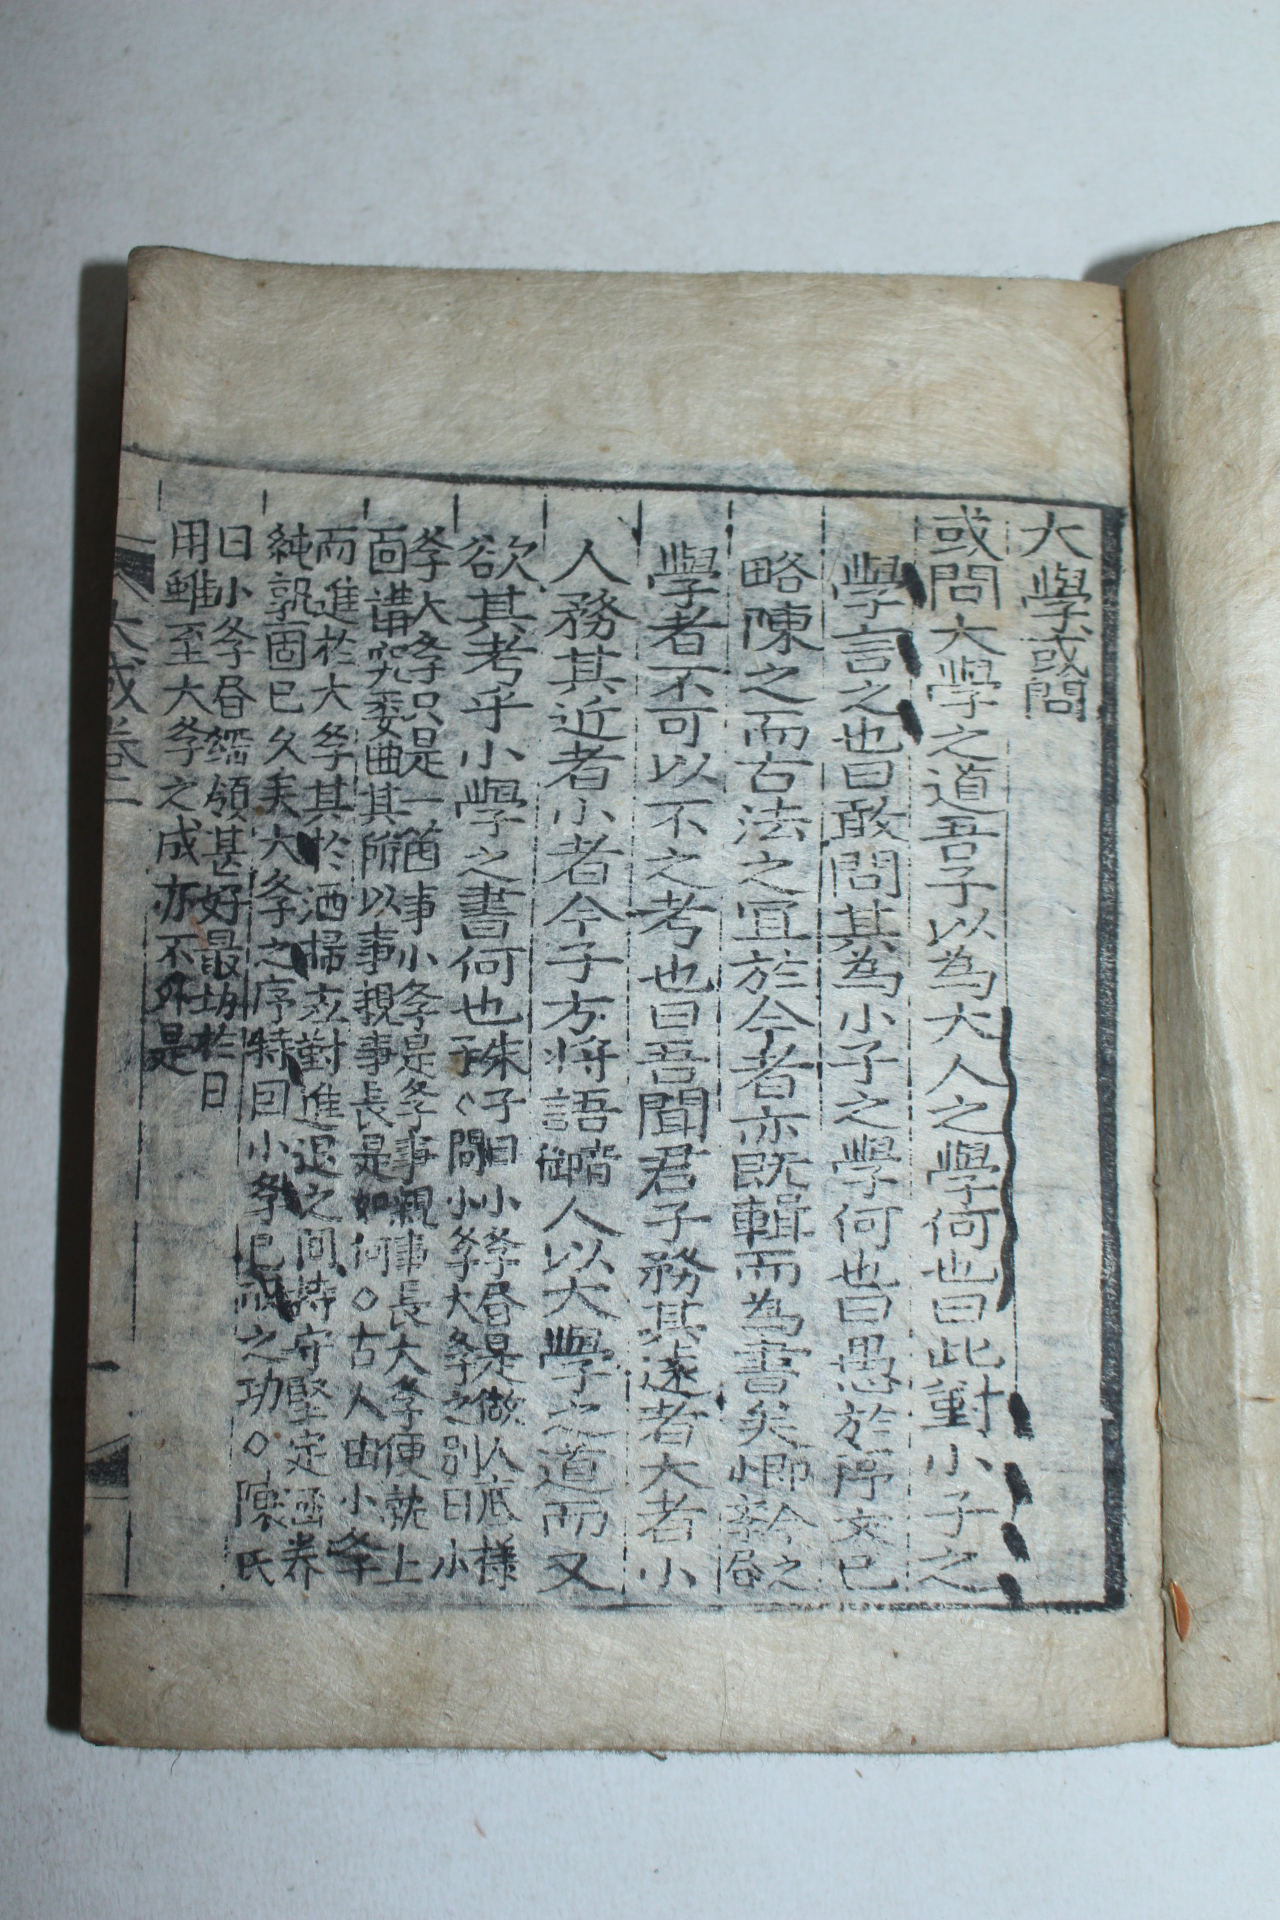 大學或問
或問大學之道吾子以為大人之學何也曰此對小子之
學言之也曰敢問其為小子之學何也曰愚於序文已
略陳之而古法之宜於今者亦既輯而為書矣
學者不可以不之考也曰吾聞君子務其遠者大者小
人務其近者小者今子方將語人以大學之道而又
欲其考乎小學之書何也朱子曰小学是做人底樣
子問小学大学之別曰小
学大学只是一箇事小学是学事親事長大学便就上
面講究委曲其所以事親事長是如何◇古人由小学
而進於大学其於洒掃應對進退之間持守堅定涵养
純熟固已久矣大学之序特因小学已成之功◇陳氏
曰小学綱領甚好最切於日
用雖至大学之成亦不外是
大或卷一